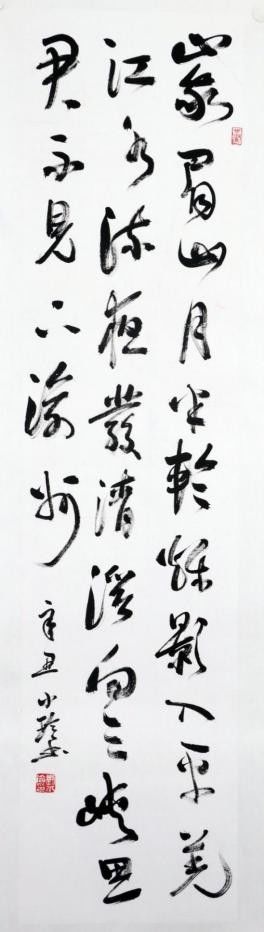 峩眉山月半輪秋影入平羌
江水流夜發清溪向三峽思
君不見下渝州 辛丑 小